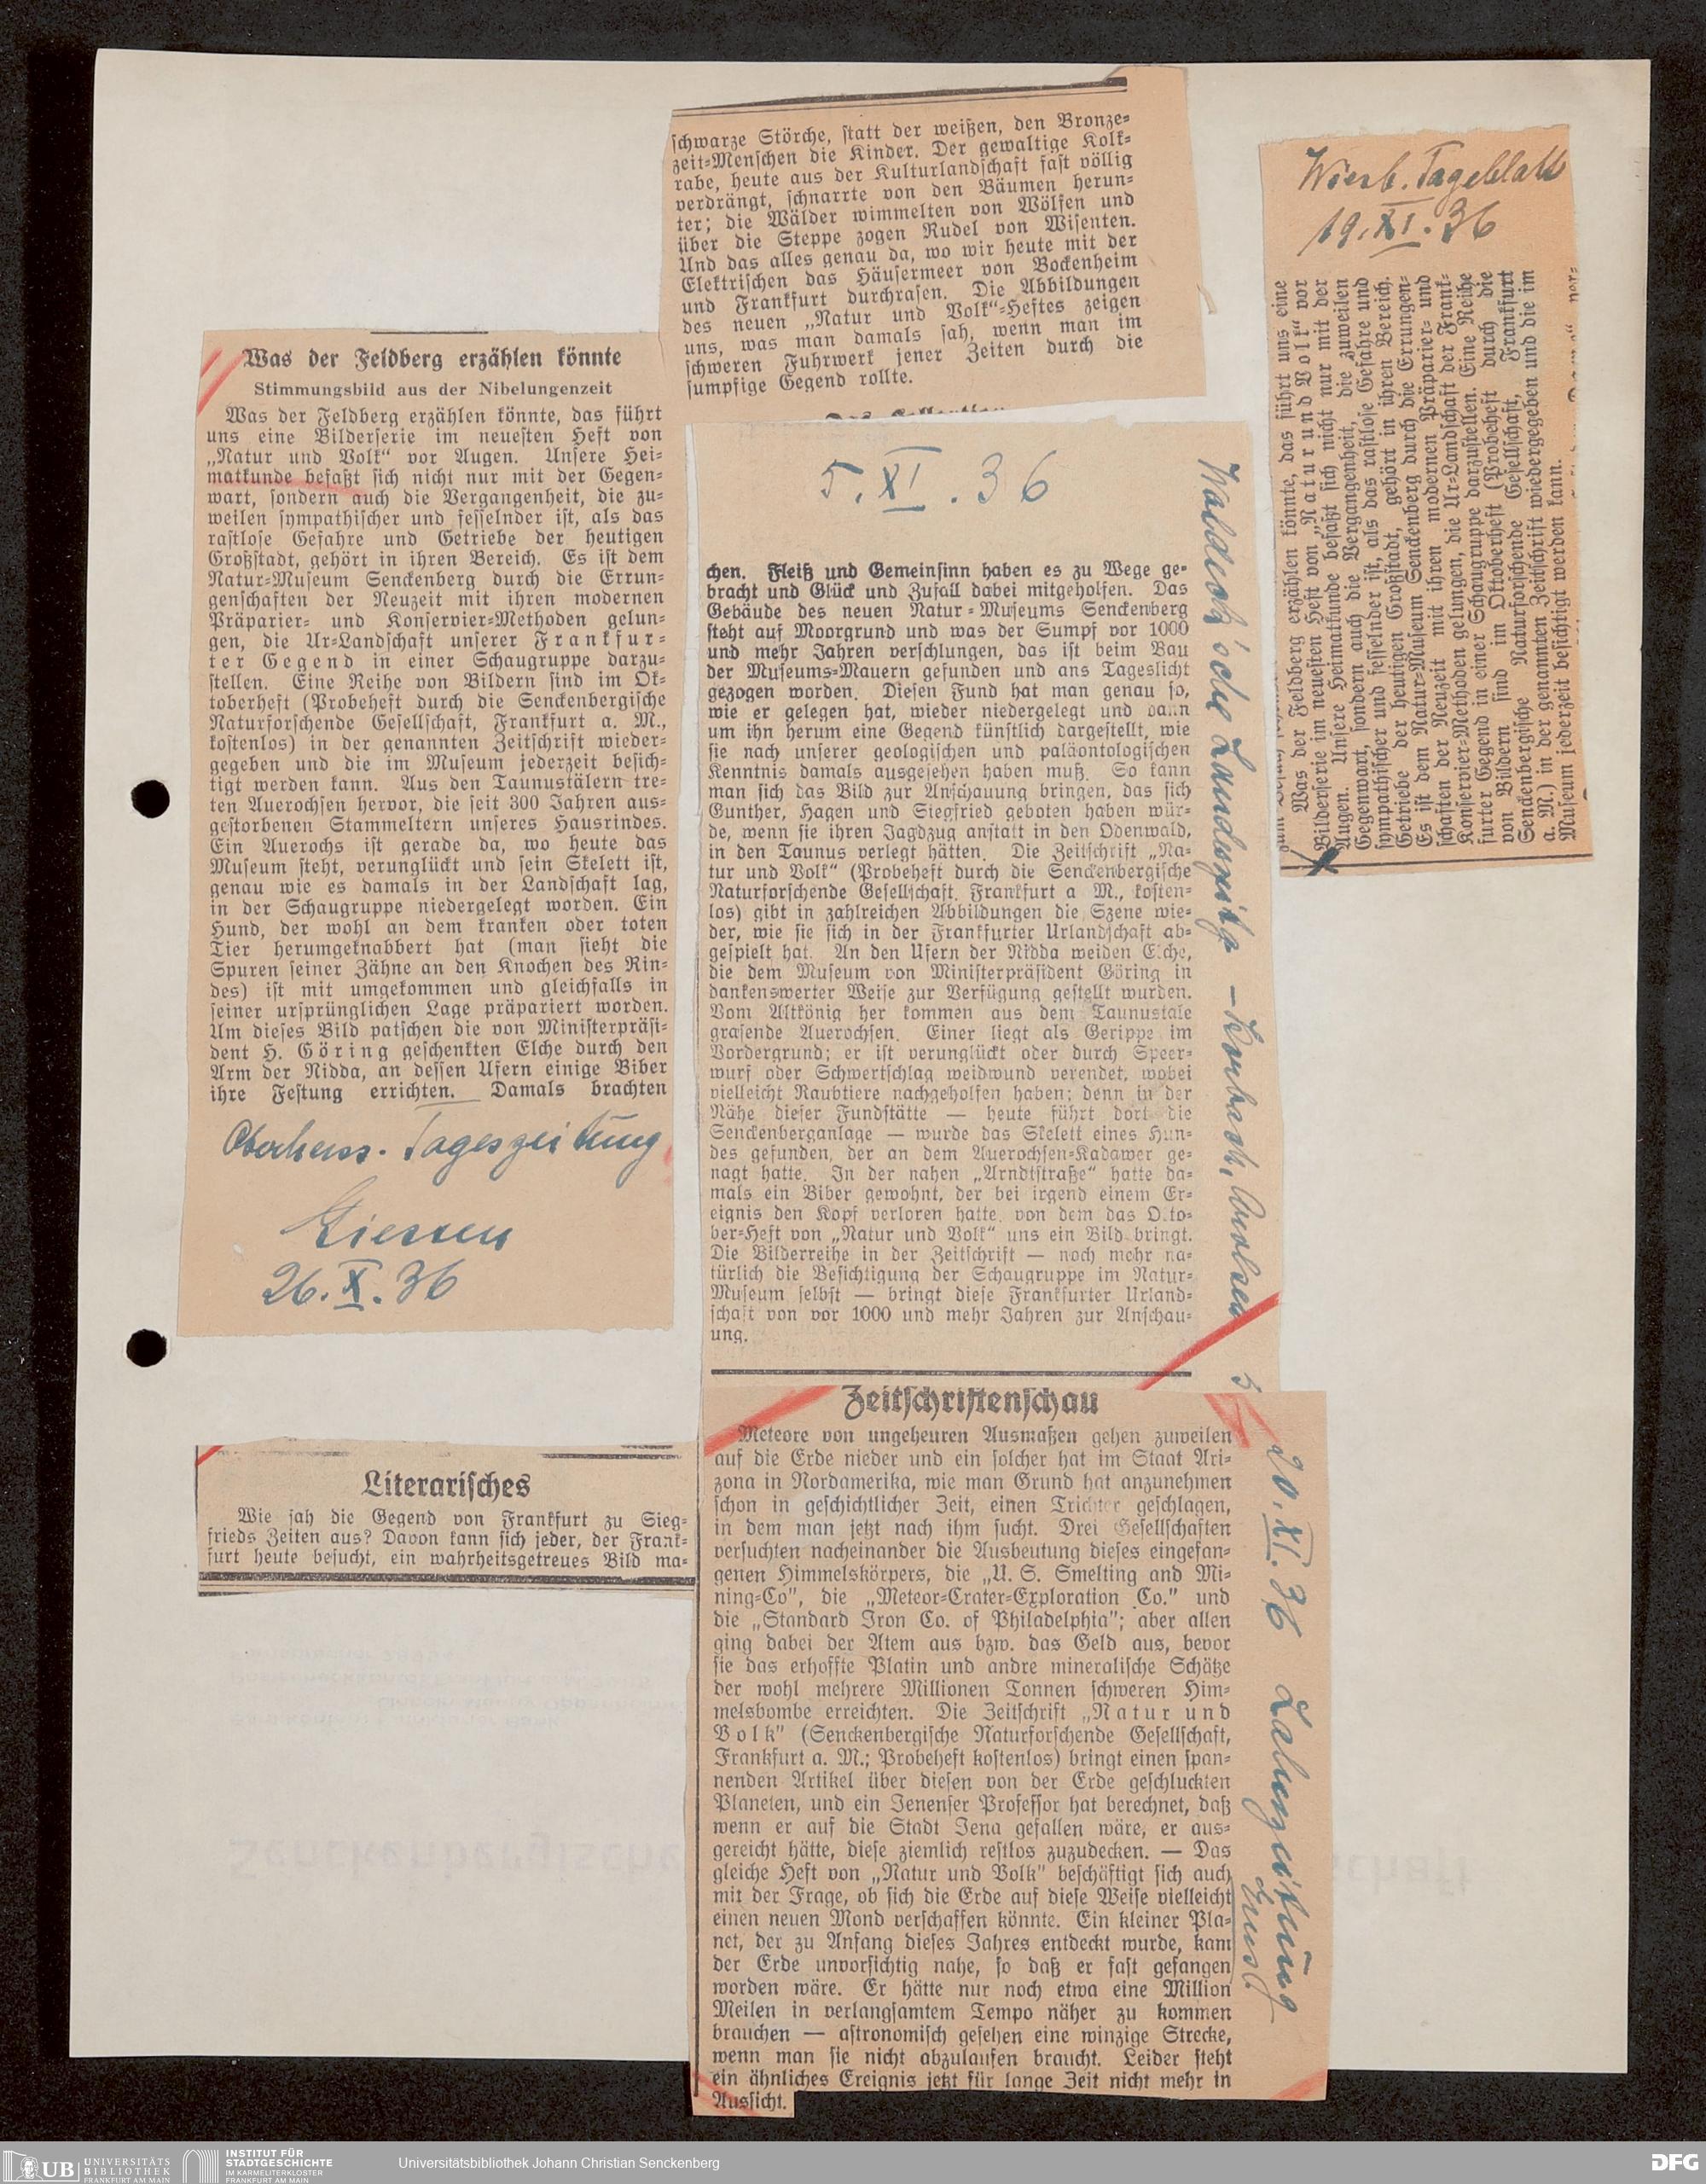 Was der Feldberg erzählen könnte
Stimmungsbild aus der Nibelungenzeit
Was der Feldberg erzählen könnte, das führt
uns eine Bilderserie im neuesten Heft von
„Natur und Volk“ vor Augen. Unsere Hei-
matkunde befaßt sich nicht nur mit der Gegen-
wart, sondern auch die Vergangenheit, die zu-
weilen sympathischer und fesselnder ist, als das
rastlose Gefahre und Getriebe der heutigen
Großstadt, gehört in ihren Bereich. Es ist dem
Natur-Museum Senckenberg durch die Errun-
genschaften der Neuzeit mit ihren modernen
Präparier- und Konservier-Methoden gelun-
gen, die Ur-Landschaft unserer Frankfur-
ter Gegend in einer Schaugruppe darzu-
stellen. Eine Reihe von Bildern sind im Ok-
toberheft (Probeheft durch die Senckenbergische
Naturforschende Gesellschaft, Frankfurt a. M.,
kostenlos) in der genannten Zeitschrift wieder-
gegeben und die im Museum jederzeit besich-
tigt werden kann. Aus den Taunustälern tre-
ten Auerochsen hervor, die seit 300 Jahren aus-
gestorbenen Stammeltern unseres Hausrindes.
Ein Auerochs ist gerade da, wo heute das
Museum steht, verunglückt und sein Skelett ist,
genau wie es damals in der Landschaft lag,
in der Schaugruppe niedergelegt worden. Ein
Hund, der wohl an dem kranken oder toten
Tier herumgeknabbert hat (man sieht die
Spuren seiner Zähne an den Knochen des Rin-
des) ist mit umgekommen und gleichfalls in
seiner ursprünglichen Lage präpariert worden.
Um dieses Bild patschen die von Ministerpräsi-
dent H. Göring geschenkten Elche durch den
Arm der Nidda, an dessen Ufern einige Biber
ihre Festung errichten. Damals brachten
Oberhess. Tageszeitung
Giessen
26. X. 36
schwarze Störche, statt der weißen, den Bronze-
zeit-Menschen die Kinder. Der gewaltige Kolk-
rabe, heute aus der Kulturlandschaft fast völlig
verdrängt, schnarrte von den Bäumen herun-
ter; die Wälder wimmelten von Wölfen und
über die Steppe zogen Rudel von Wisenten.
Und das alles genau da, wo wir heute mit der
Elektrischen das Häusermeer von Bockenheim
und Frankfurt durchrasen. Die Abbildungen
des neuen „Natur und Volk“-Heftes zeigen
uns, was man damals sah, wenn man im
schweren Fuhrwerk jener Zeiten durch die
sumpfige Gegend rollte.
Literarisches
Wie sah die Gegend von Frankfurt zu Sieg-
frieds Zeiten aus? Davon kann sich jeder, der Frank-
furt heute besucht, ein wahrheitsgetreues Bild ma-
5. XI. 36
chen. Fleiß und Gemeinsinn haben es zu Wege ge-
bracht und Glück und Zufall dabei mitgeholfen. Das
Gebäude des neuen Natur-Museums Senckenberg
steht auf Moorgrund und was der Sumpf vor 1000
und mehr Jahren verschlungen, das ist beim Bau
der Museums-Mauern gefunden und ans Tageslicht
gezogen worden. Diesen Fund hat man genau so,
wie er gelegen hat, wieder niedergelegt und dann
um ihn herum eine Gegend künstlich dargestellt, wie
sie nach unserer geologischen und paläontologischen
Kenntnis damals ausgesehen haben muß. So kann
man sich das Bild zur Anschauung bringen, das sich
Gunther, Hagen und Siegfried geboten haben wür-
de, wenn sie ihren Jagdzug anstatt in den Odenwald,
in den Taunus verlegt hätten. Die Zeitschrift „Na-
tur und Volk“ (Probeheft durch die Senckenbergische
Naturforschende Gesellschaft, Frankfurt a M., kosten-
los) gibt in zahlreichen Abbildungen die Szene wie-
der, wie sie sich in der Frankfurter Urlandschaft ab-
gespielt hat. An den Ufern der Nidda weiden Elche,
die dem Museum von Ministerpräsident Göring in
dankenswerter Weise zur Verfügung gestellt wurden.
Vom Altkönig her kommen aus dem Taunustale
grasende Auerochsen. Einer liegt als Gerippe im
Vordergrund; er ist verunglückt oder durch Speer-
wurf oder Schwertschlag weidwund verendet, wobei
vielleicht Raubtiere nachgeholfen haben; denn in der
Nähe dieser Fundstätte — heute führt dort die
Senckenberganlage — wurde das Skelett eines Hun-
des gefunden, der an dem Auerochsen-Kadawer ge-
nagt hatte. In der nahen „Arndtstraße“ hatte da-
mals ein Biber gewohnt, der bei irgend einem Er-
eignis den Kopf verloren hatte, von dem das Okto-
ber-Heft von „Natur und Volk“ uns ein Bild bringt.
Die Bilderreihe in der Zeitschrift — noch mehr na-
türlich die Besichtigung der Schaugruppe im Natur-
Museum selbst — bringt diese Frankfurter Urland-
schaft von vor 1000 und mehr Jahren zur Anschau-
ung.
Waldeck'sche Landeszeitg – Korbach, Arolsen
Zeitschriftenschau
Meteore von ungeheuren Ausmaßen gehen zuweilen
auf die Erde nieder und ein solcher hat im Staat Ari-
zona in Nordamerika, wie man Grund hat anzunehmen
schon in geschichtlicher Zeit, einen Trichter geschlagen,
in dem man jetzt nach ihm sucht. Drei Gesellschaften
versuchten nacheinander die Ausbeutung dieses eingefan-
genen Himmelskörpers, die „U. S. Smelting and Mi-
ning-Co“, die „Meteor-Crater-Exploration Co.“ und
die „Standard Iron Co. of Philadelphia“; aber allen
ging dabei der Atem aus bzw. das Geld aus, bevor
sie das erhoffte Platin und andre mineralische Schätze
der wohl mehrere Millionen Tonnen schweren Him-
melsbombe erreichten. Die Zeitschrift „Natur und
Volk“ (Senckenbergische Naturforschende Gesellschaft,
Frankfurt a. M.; Probeheft kostenlos) bringt einen span-
nenden Artikel über diesen von der Erde geschluckten
Planeten, und ein Jenenser Professor hat berechnet, daß
wenn er auf die Stadt Jena gefallen wäre, er aus-
gereicht hätte, diese ziemlich restlos zuzudecken. — Das
gleiche Heft von „Natur und Volk“ beschäftigt sich auch
mit der Frage, ob sich die Erde auf diese Weise vielleicht
einen neuen Mond verschaffen könnte. Ein kleiner Pla-
net, der zu Anfang dieses Jahres entdeckt wurde, kam
der Erde unvorsichtig nahe, so daß er fast gefangen
worden wäre. Er hätte nur noch etwa eine Million
Meilen in verlangsamtem Tempo näher zu kommen
brauchen — astronomisch gesehen eine winzige Strecke,
wenn man sie nicht abzulaufen braucht. Leider steht
ein ähnliches Ereignis jetzt für lange Zeit nicht mehr in
Aussicht.
20. XI. 36 Lahnzeitung
Wiesb. Tageblatt
19. XI. 36
Was der Feldberg erzählen könnte, das führt uns eine
Bilderserie im neuesten Heft von „Natur und Volk“ vor
Augen. Unsere Heimatkunde befaßt sich nicht nur mit der
Gegenwart, sondern auch die Vergangenheit, die zuweilen
sympathischer und fesselnder ist, als das rastlose Gefahre und
Getriebe der heutigen Großstadt, gehört in ihren Bereich.
Es ist dem Natur-Museum Senckenberg durch die Errungen-
schaften der Neuzeit mit ihren modernen Präparier- und
Konservier-Methoden gelungen, die Ur-Landschaft der Frank-
furter Gegend in einer Schaugruppe darzustellen. Eine Reihe
von Bildern sind im Oktoberheft (Probeheft durch die
Senckenbergische Naturforschende Gesellschaft, Frankfurt
a. M.) in der genannten Zeitschrift wiedergegeben und die im
Museum jederzeit besichtigt werden kann.
UB UNIVERSITÄTS
BIBLIOTHEK
FRANKFURT AM MAIN
INSTITUT FÜR
STADTGESCHICHTE
IM KARMELITERKLOSTER
FRANKFURT AM MAIN
Universitätsbibliothek Johann Christian Senckenberg
DFG